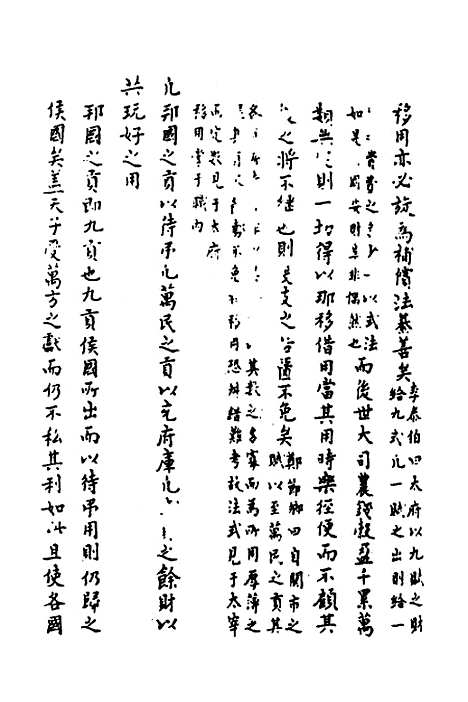 移用亦必設為補償法綦善矣李泰伯曰太府以九賦之財
給九式凡一賦之出則給一
費之 以式法
如是 財 非偶然也而後世大司農錢穀盈千累萬
類無 則一切得以那移借用當其用時樂徑便而不顧其
之將不繼也則 支之 不免矣鄭節卿曰自關市之
賦以至萬民之貢其
其數之多寡而為所用厚薄之
不免 移用恐糾錯難考故法式見于太宰
定數見于太府
移用掌于職內
凡邦國之貢以待弔凡萬民之貢以充府庫凡 之餘財以
共玩好之用
邦國之貢即九貢也九貢侯國所出而以待弔用則仍歸之
侯國矣蓋天子受萬方之獻而仍不私其利如此且使各國